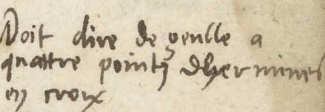 Doit dire de geulle a
quattre pointz dhermines
en croix